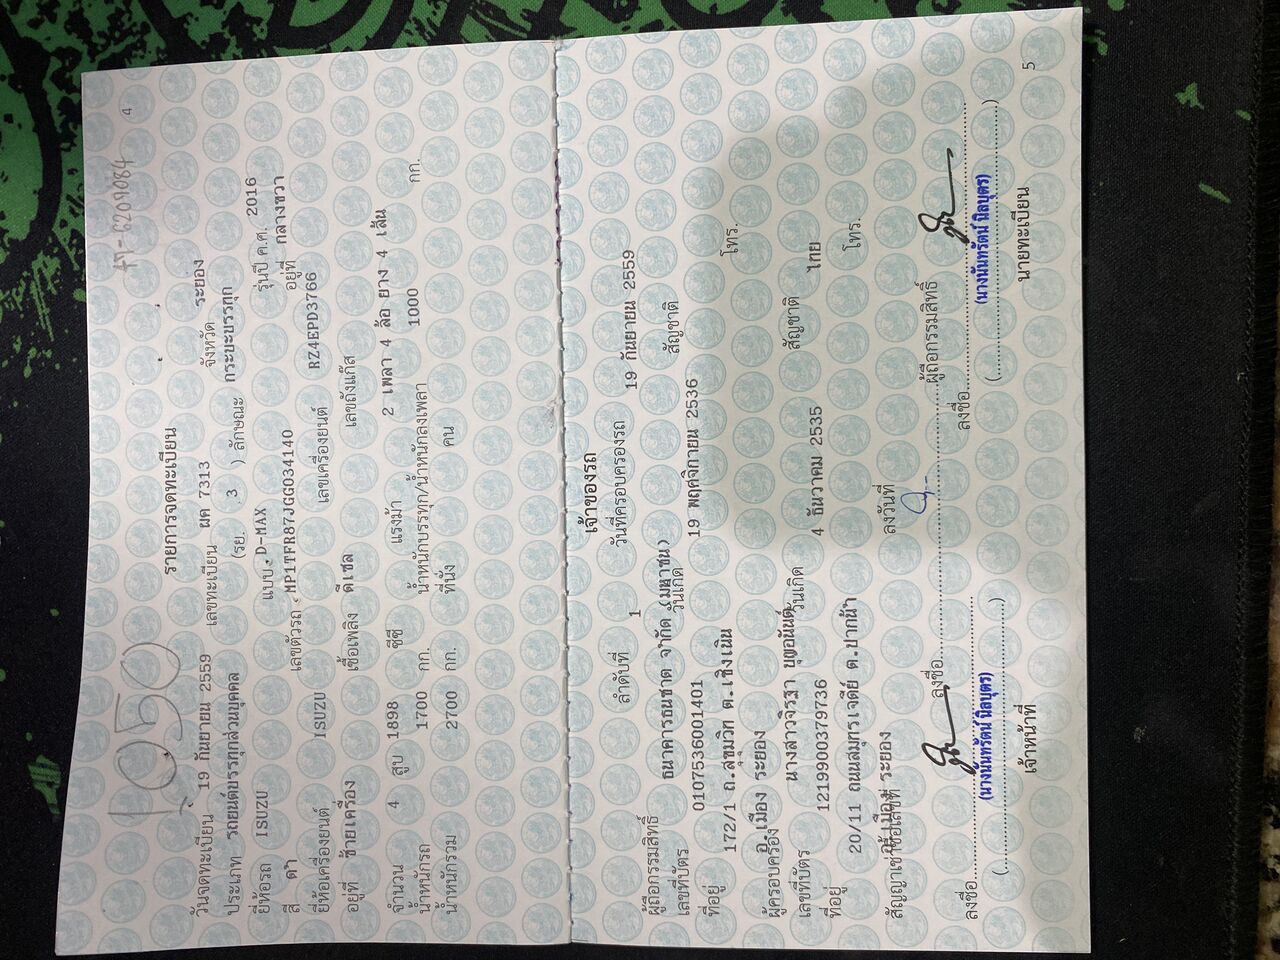 1050
ฆฯ-6209084
4
รายการจดทะเบียน
วันจดทะเบียน 19 กันยายน 2559 เลขทะเบียน ผค 7313 จังหวัด ระยอง
ประเภท รถยนต์บรรทุกส่วนบุคคล (รย. 3 ) ลักษณะ กระบะบรรทุก
ยี่ห้อรถ ISUZU แบบ D-MAX รุ่นปี ค.ศ. 2016
สี ดำ เลขตัวรถ MP1TFR87JGG034140 อยู่ที่ กลางขวา
ยี่ห้อเครื่องยนต์ ISUZU เลขเครื่องยนต์ RZ4EPD3766
อยู่ที่ ซ้ายเครื่อง เชื้อเพลิง ดีเซล เลขถังแก๊ส
จำนวน 4 สูบ 1898 ซีซี แรงม้า 2 เพลา 4 ล้อ ยาง 4 เส้น
น้ำหนักรถ 1700 กก. น้ำหนักบรรทุก/น้ำหนักลงเพลา 1000 กก.
น้ำหนักรวม 2700 กก. ที่นั่ง คน
เจ้าของรถ
ลำดับที่ 1 วันที่ครอบครองรถ 19 กันยายน 2559
ผู้ถือกรรมสิทธิ์ ธนาคารธนชาต จำกัด (มหาชน) สัญชาติ
เลขที่บัตร 0107536001401 วันเกิด 19 พฤศจิกายน 2536
ที่อยู่ 172/1 ถ.สุขุมวิท ต.เชิงเนิน โทร.
อ.เมือง ระยอง
ผู้ครอบครอง นางสาวจิรฐา บุญอนันต์ สัญชาติ ไทย
เลขที่บัตร 1219900379736 วันเกิด 4 ธันวาคม 2535
ที่อยู่ 20/11 ถนนสมุทรเจดีย์ ต.ปากน้ำ โทร.
อ.เมือง ระยอง
สัญญาเช่าซื้อเลขที่ ลงวันที่
ลงชื่อ ผู้ถือกรรมสิทธิ์
ลงชื่อ ลงชื่อ
(นางนันทรัตน์ นิลบุตร) (นางนันทรัตน์ นิลบุตร)
เจ้าหน้าที่ นายทะเบียน
5